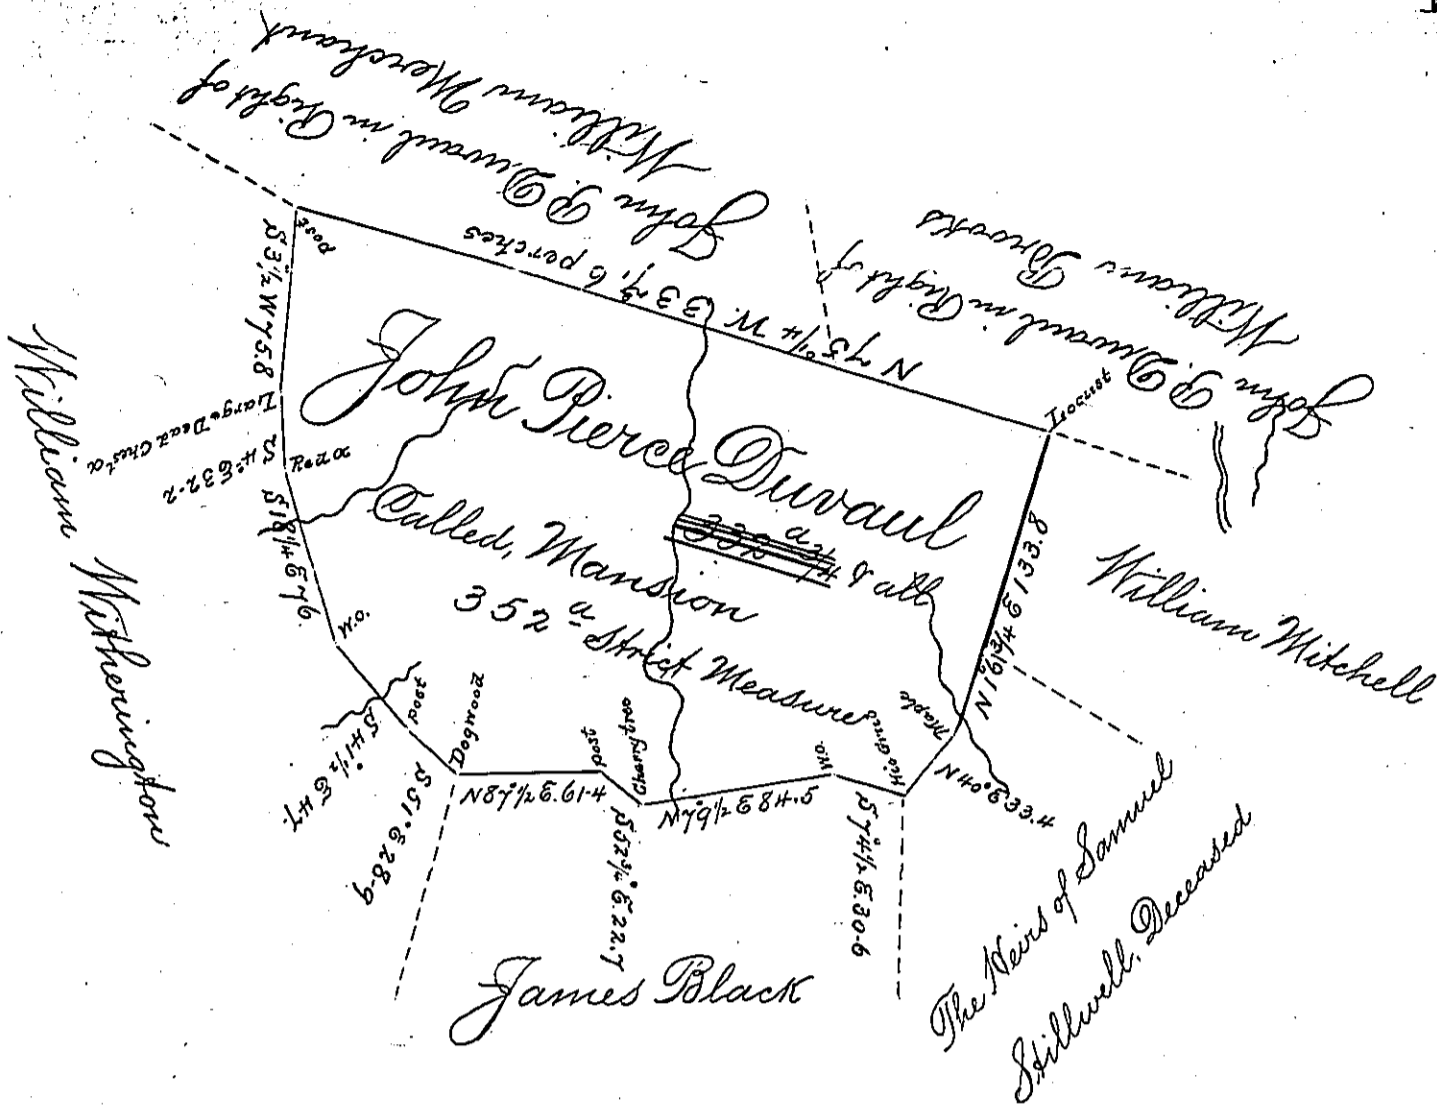 John P. Duvaul in Right of
William Merchant
John P. Duvaul in Right of
William Brooks
N 73°1/4 W. 337,6 perches
post
Locust
S 3°1/2 W 75.8
Large Dead Ches't
S 4° E 32-2
Red O
S 18°1/4 E 76.
W.O.
S 41°1/2 E 47
post
S 51° E 28-9
Dogwood
N 87°1/2 E. 61-4
post
S 52 3/4° E. 22.7
Cherrytree
N 79°1/2 E 84.5
W.O.
S 74°1/2 E. 30-6
N 40° E 33.4
Maple
N 16°3/4 E 133.8
John Pierce Duvaul
Called, Mansion
& all
352 a
Strict Measure
William Witherington
William Mitchell
James Black
The Heirs of Samuel
Stillwell, Deceased